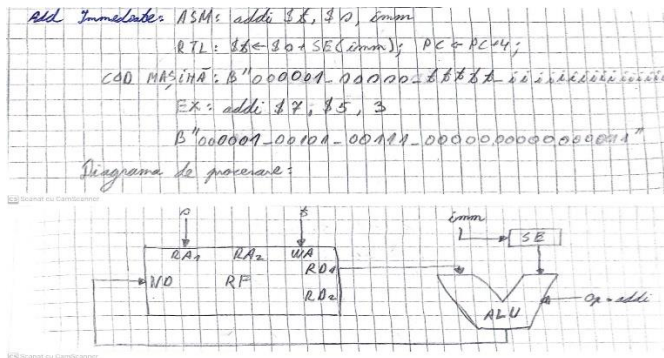 Add Immediate: ASM: addi $t, $s, imm
RTL: $t ← $s + SE(imm); PC ← PC+4;
COD MAȘINĂ: B"000001_sssss_ttttt_iiiiiiiiiiiiiiii
EX: addi $7, $5, 3
B"000001_00101_00111_0000000000000011"
Diagrama de procesare:
CS Scanat cu CamScanner
s t imm
SE
RA1 RA2 WA
RD1
WD RF
RD2
ALU
Op = addi
CS Scanat cu CamScanner